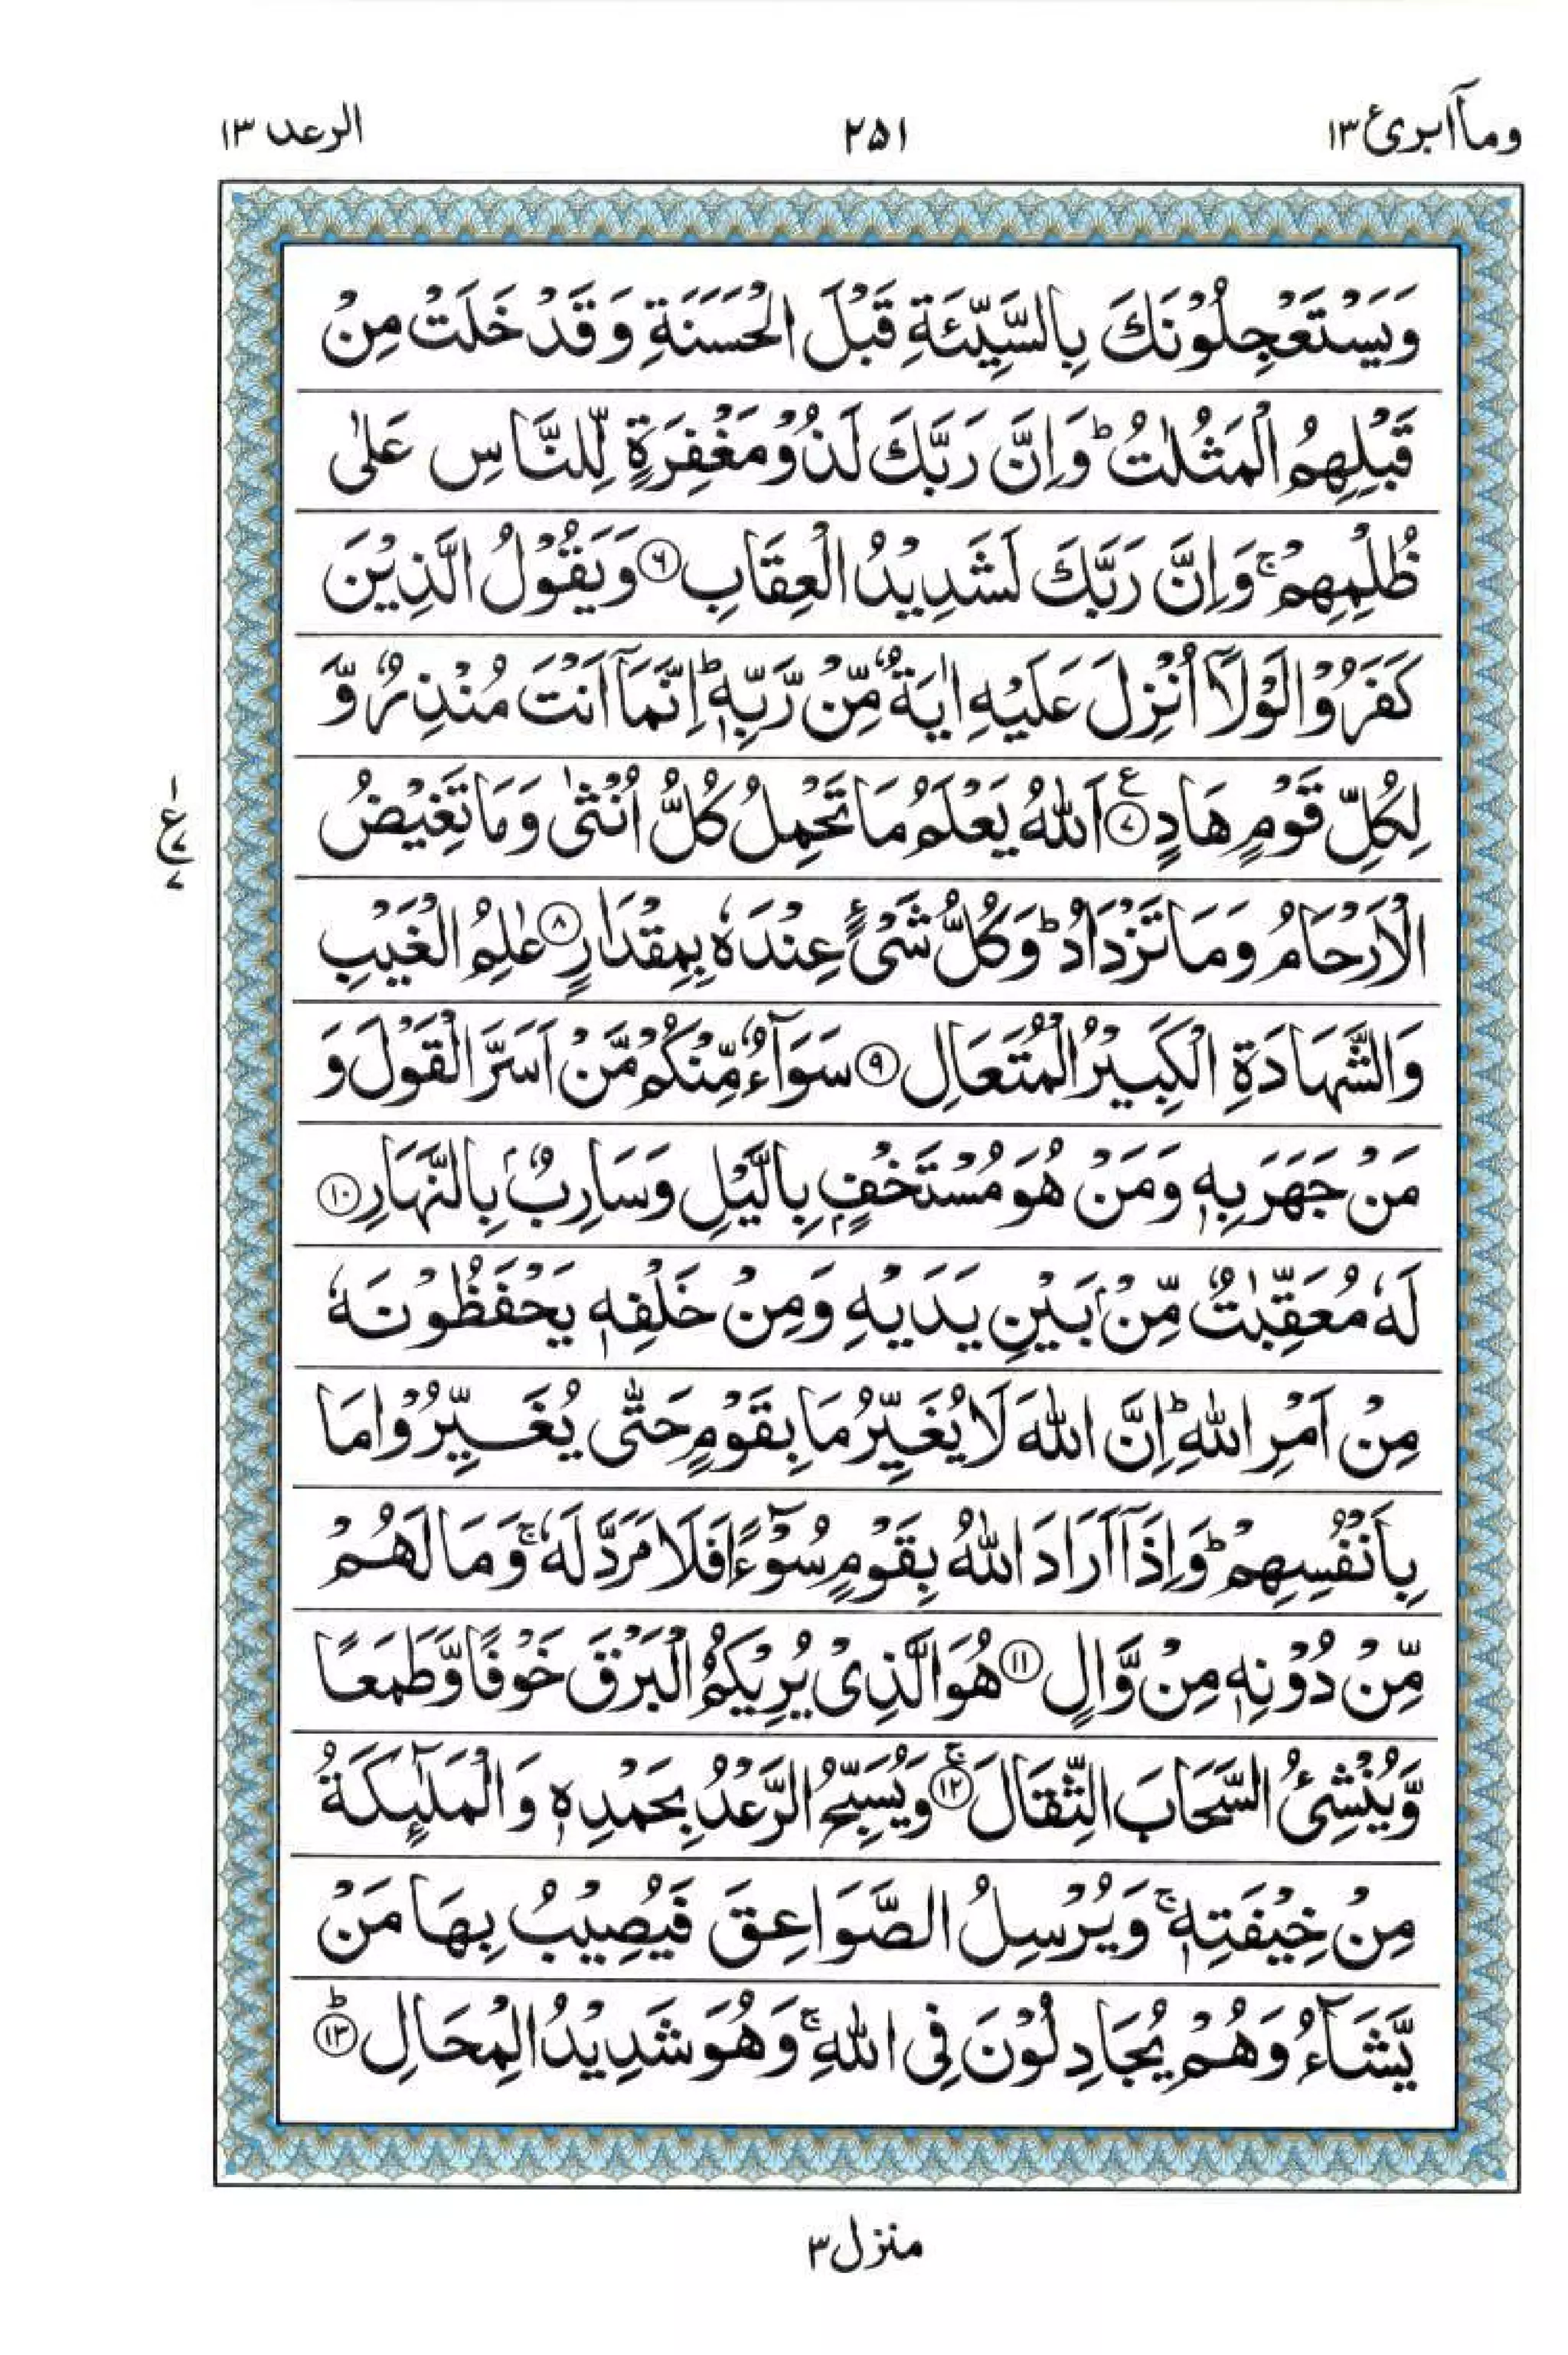 وماۤ ابرئ ١٣
٢٥١
الرعد ١٣
وَيَسْتَعْجِلُوْنَكَ بِالسَّيِّئَةِ قَبْلَ الْحَسَنَةِ وَقَدْ خَلَتْ مِنْ
قَبْلِهِمُ الْمَثُلٰتُ ؕ وَاِنَّ رَبَّكَ لَذُوْ مَغْفِرَةٍ لِّلنَّاسِ عَلٰى
ظُلْمِهِمْ ۚ وَاِنَّ رَبَّكَ لَشَدِيْدُ الْعِقَابِ ﴿۶﴾ وَيَقُوْلُ الَّذِيْنَ
كَفَرُوْا لَوْلَاۤ اُنْزِلَ عَلَيْهِ اٰيَةٌ مِّنْ رَّبِّهٖ ؕ اِنَّمَاۤ اَنْتَ مُنْذِرٌ وَّ
لِكُلِّ قَوْمٍ هَادٍ ﴿۷﴾ ع اَللّٰهُ يَعْلَمُ مَا تَحْمِلُ كُلُّ اُنْثٰى وَمَا تَغِيْضُ
١
ع
٧
٧
الْاَرْحَامُ وَمَا تَزْدَادُ ؕ وَكُلُّ شَىْءٍ عِنْدَهٗ بِمِقْدَارٍ ﴿۸﴾ عٰلِمُ الْغَيْبِ
وَالشَّهَادَةِ الْكَبِيْرُ الْمُتَعَالِ ﴿۹﴾ سَوَآءٌ مِّنْكُمْ مَّنْ اَسَرَّ الْقَوْلَ وَ
مَنْ جَهَرَ بِهٖ وَمَنْ هُوَ مُسْتَخْفٍۭ بِالَّيْلِ وَسَارِبٌۢ بِالنَّهَارِ ﴿۱۰﴾
لَهٗ مُعَقِّبٰتٌ مِّنْۢ بَيْنِ يَدَيْهِ وَمِنْ خَلْفِهٖ يَحْفَظُوْنَهٗ
مِنْ اَمْرِ اللّٰهِ ؕ اِنَّ اللّٰهَ لَا يُغَيِّرُ مَا بِقَوْمٍ حَتّٰى يُغَيِّرُوْا مَا
بِاَنْفُسِهِمْ ؕ وَاِذَاۤ اَرَادَ اللّٰهُ بِقَوْمٍ سُوْٓءًا فَلَا مَرَدَّ لَهٗ ۚ وَمَا لَهُمْ
مِّنْ دُوْنِهٖ مِنْ وَّالٍ ﴿۱۱﴾ هُوَ الَّذِىْ يُرِيْكُمُ الْبَرْقَ خَوْفًا وَّطَمَعًا
وَّيُنْشِئُ السَّحَابَ الثِّقَالَ ﴿۱۲﴾ ۚ وَيُسَبِّحُ الرَّعْدُ بِحَمْدِهٖ وَالْمَلٰٓئِكَةُ
مِنْ خِيْفَتِهٖ ۚ وَيُرْسِلُ الصَّوَاعِقَ فَيُصِيْبُ بِهَا مَنْ
يَّشَآءُ وَهُمْ يُجَادِلُوْنَ فِى اللّٰهِ ۚ وَهُوَ شَدِيْدُ الْمِحَالِ ﴿۱۳﴾ ؕ
منزل ٣